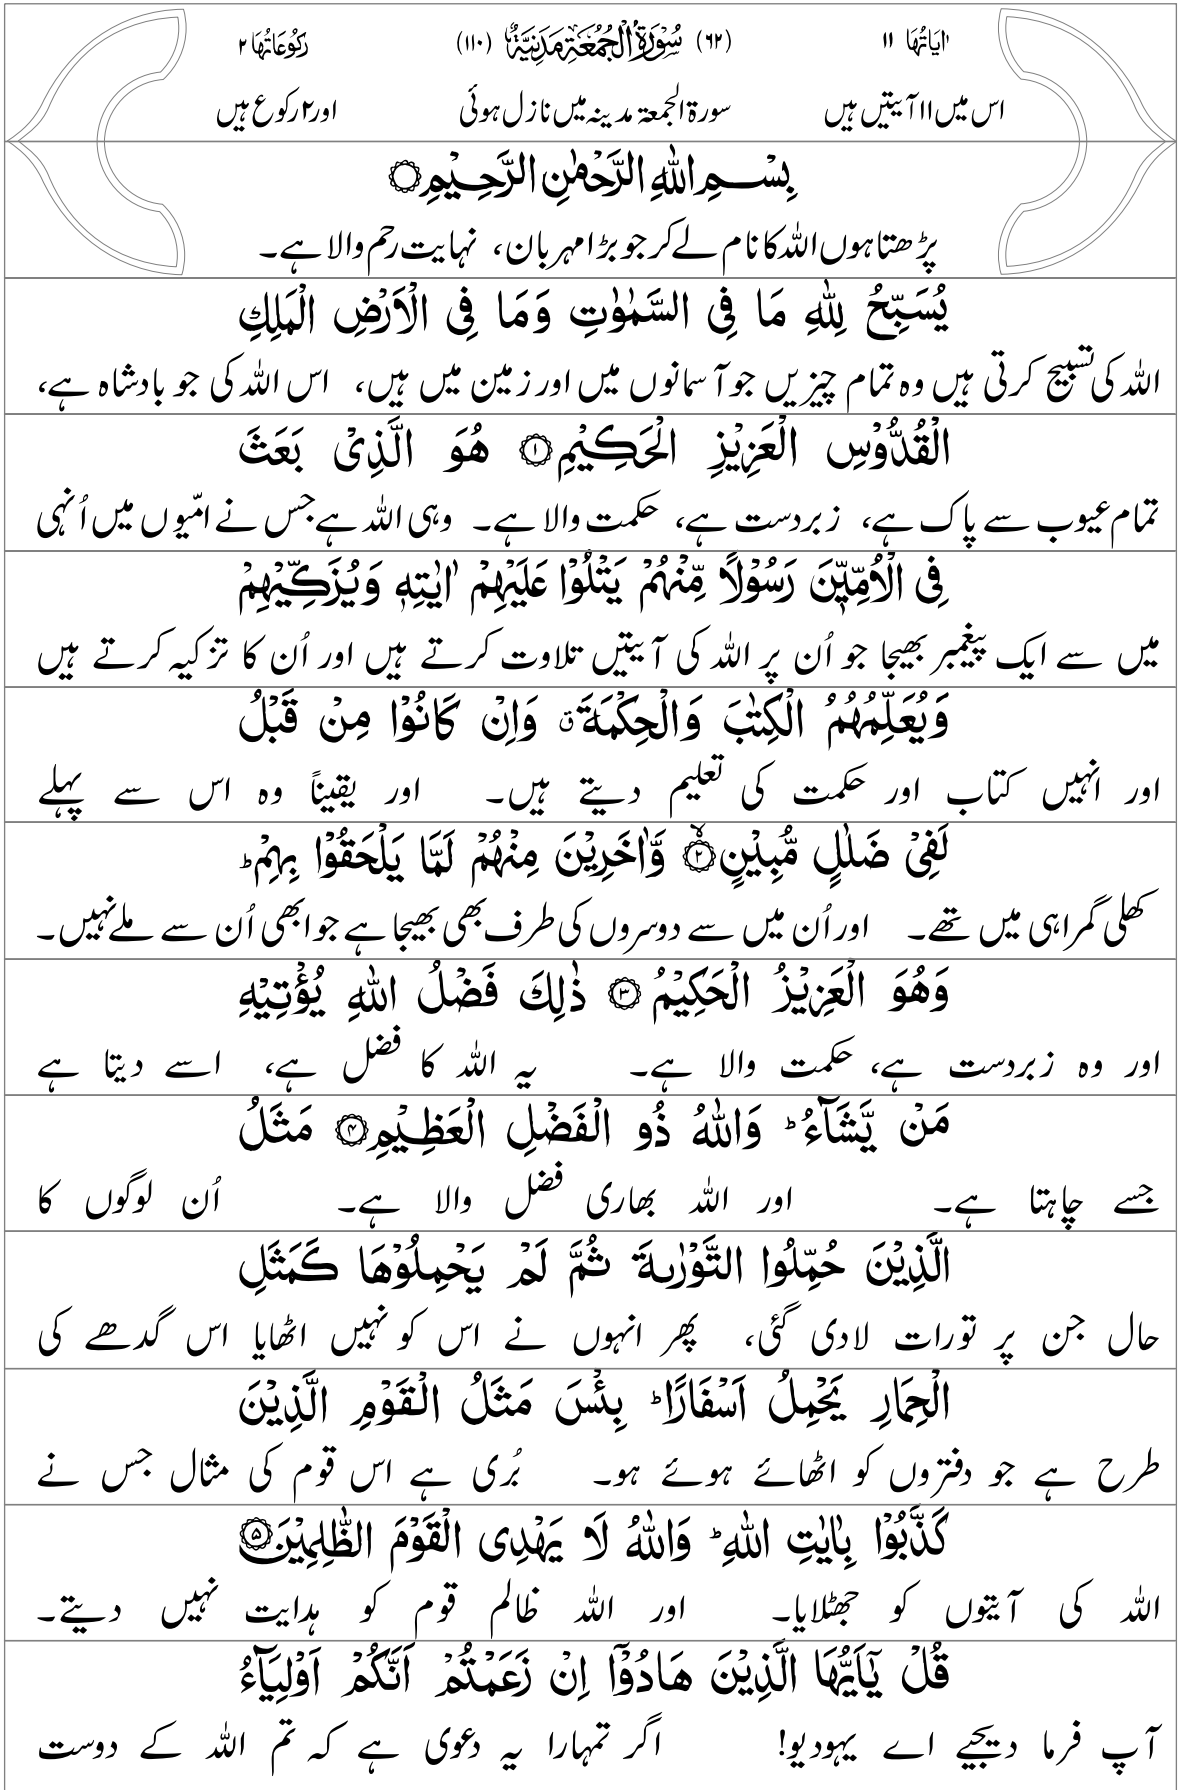 اٰيَاتُهَا ۱۱ (۶۲) سُوْرَةُ الْجُمُعَةِ مَدَنِيَّةٌ (۱۱۰) رُكُوْعَاتُهَا ۲
اس میں ۱۱ آیتیں ہیں سورۃ الجمعۃ مدینہ میں نازل ہوئی اور ۲ رکوع ہیں
بِسْمِ اللهِ الرَّحْمٰنِ الرَّحِيْمِ۝
پڑھتا ہوں اللہ کا نام لے کر جو بڑا مہربان، نہایت رحم والا ہے۔
يُسَبِّحُ لِلّٰهِ مَا فِي السَّمٰوٰتِ وَمَا فِي الْاَرْضِ الْمَلِكِ
اللہ کی تسبیح کرتی ہیں وہ تمام چیزیں جو آسمانوں میں اور زمین میں ہیں، اس اللہ کی جو بادشاہ ہے،
الْقُدُّوْسِ الْعَزِيْزِ الْحَكِيْمِ۝۱ هُوَ الَّذِيْ بَعَثَ
تمام عیوب سے پاک ہے، زبردست ہے، حکمت والا ہے۔ وہی اللہ ہے جس نے امّیوں میں اُنہی
فِي الْاُمِّيّٖنَ رَسُوْلًا مِّنْهُمْ يَتْلُوْا عَلَيْهِمْ اٰيٰتِهٖ وَيُزَكِّيْهِمْ
میں سے ایک پیغمبر بھیجا جو اُن پر اللہ کی آیتیں تلاوت کرتے ہیں اور اُن کا تزکیہ کرتے ہیں
وَيُعَلِّمُهُمُ الْكِتٰبَ وَالْحِكْمَةَ ۗ وَاِنْ كَانُوْا مِنْ قَبْلُ
اور انہیں کتاب اور حکمت کی تعلیم دیتے ہیں۔ اور یقیناً وہ اس سے پہلے
لَفِيْ ضَلٰلٍ مُّبِيْنٍ۝۲ وَّاٰخَرِيْنَ مِنْهُمْ لَمَّا يَلْحَقُوْا بِهِمْ ؕ
کھلی گمراہی میں تھے۔ اور اُن میں سے دوسروں کی طرف بھی بھیجا ہے جو ابھی اُن سے ملے نہیں۔
وَهُوَ الْعَزِيْزُ الْحَكِيْمُ۝۳ ذٰلِكَ فَضْلُ اللهِ يُؤْتِيْهِ
اور وہ زبردست ہے، حکمت والا ہے۔ یہ اللہ کا فضل ہے، اسے دیتا ہے
مَنْ يَّشَآءُ ؕ وَاللهُ ذُو الْفَضْلِ الْعَظِيْمِ۝۴ مَثَلُ
جسے چاہتا ہے۔ اور اللہ بھاری فضل والا ہے۔ اُن لوگوں کا
الَّذِيْنَ حُمِّلُوا التَّوْرٰىةَ ثُمَّ لَمْ يَحْمِلُوْهَا كَمَثَلِ
حال جن پر تورات لادی گئی، پھر انہوں نے اس کو نہیں اٹھایا اس گدھے کی
الْحِمَارِ يَحْمِلُ اَسْفَارًا ؕ بِئْسَ مَثَلُ الْقَوْمِ الَّذِيْنَ
طرح ہے جو دفتروں کو اٹھائے ہوئے ہو۔ بُری ہے اس قوم کی مثال جس نے
كَذَّبُوْا بِاٰيٰتِ اللهِ ؕ وَاللهُ لَا يَهْدِي الْقَوْمَ الظّٰلِمِيْنَ۝۵
اللہ کی آیتوں کو جھٹلایا۔ اور اللہ ظالم قوم کو ہدایت نہیں دیتے۔
قُلْ يٰٓاَيُّهَا الَّذِيْنَ هَادُوْٓا اِنْ زَعَمْتُمْ اَنَّكُمْ اَوْلِيَآءُ
آپ فرما دیجیے اے یہودیو! اگر تمہارا یہ دعوی ہے کہ تم اللہ کے دوست